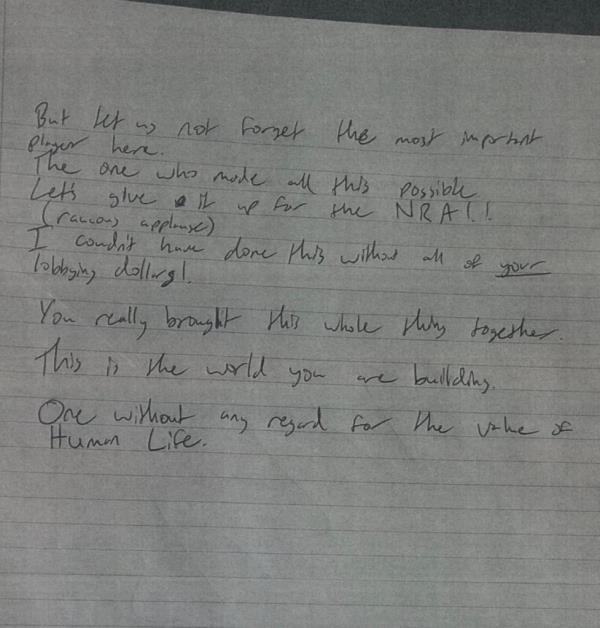 But let us not forget the most important
player here.
The one who made all this possible
Let's give it up for the NRA!!
(raucous applause)
I couldn't have done this without all of your
lobbying dollars!
You really brought this whole thing together.
This is the world you are building.
One without any regard for the value of
Human Life.